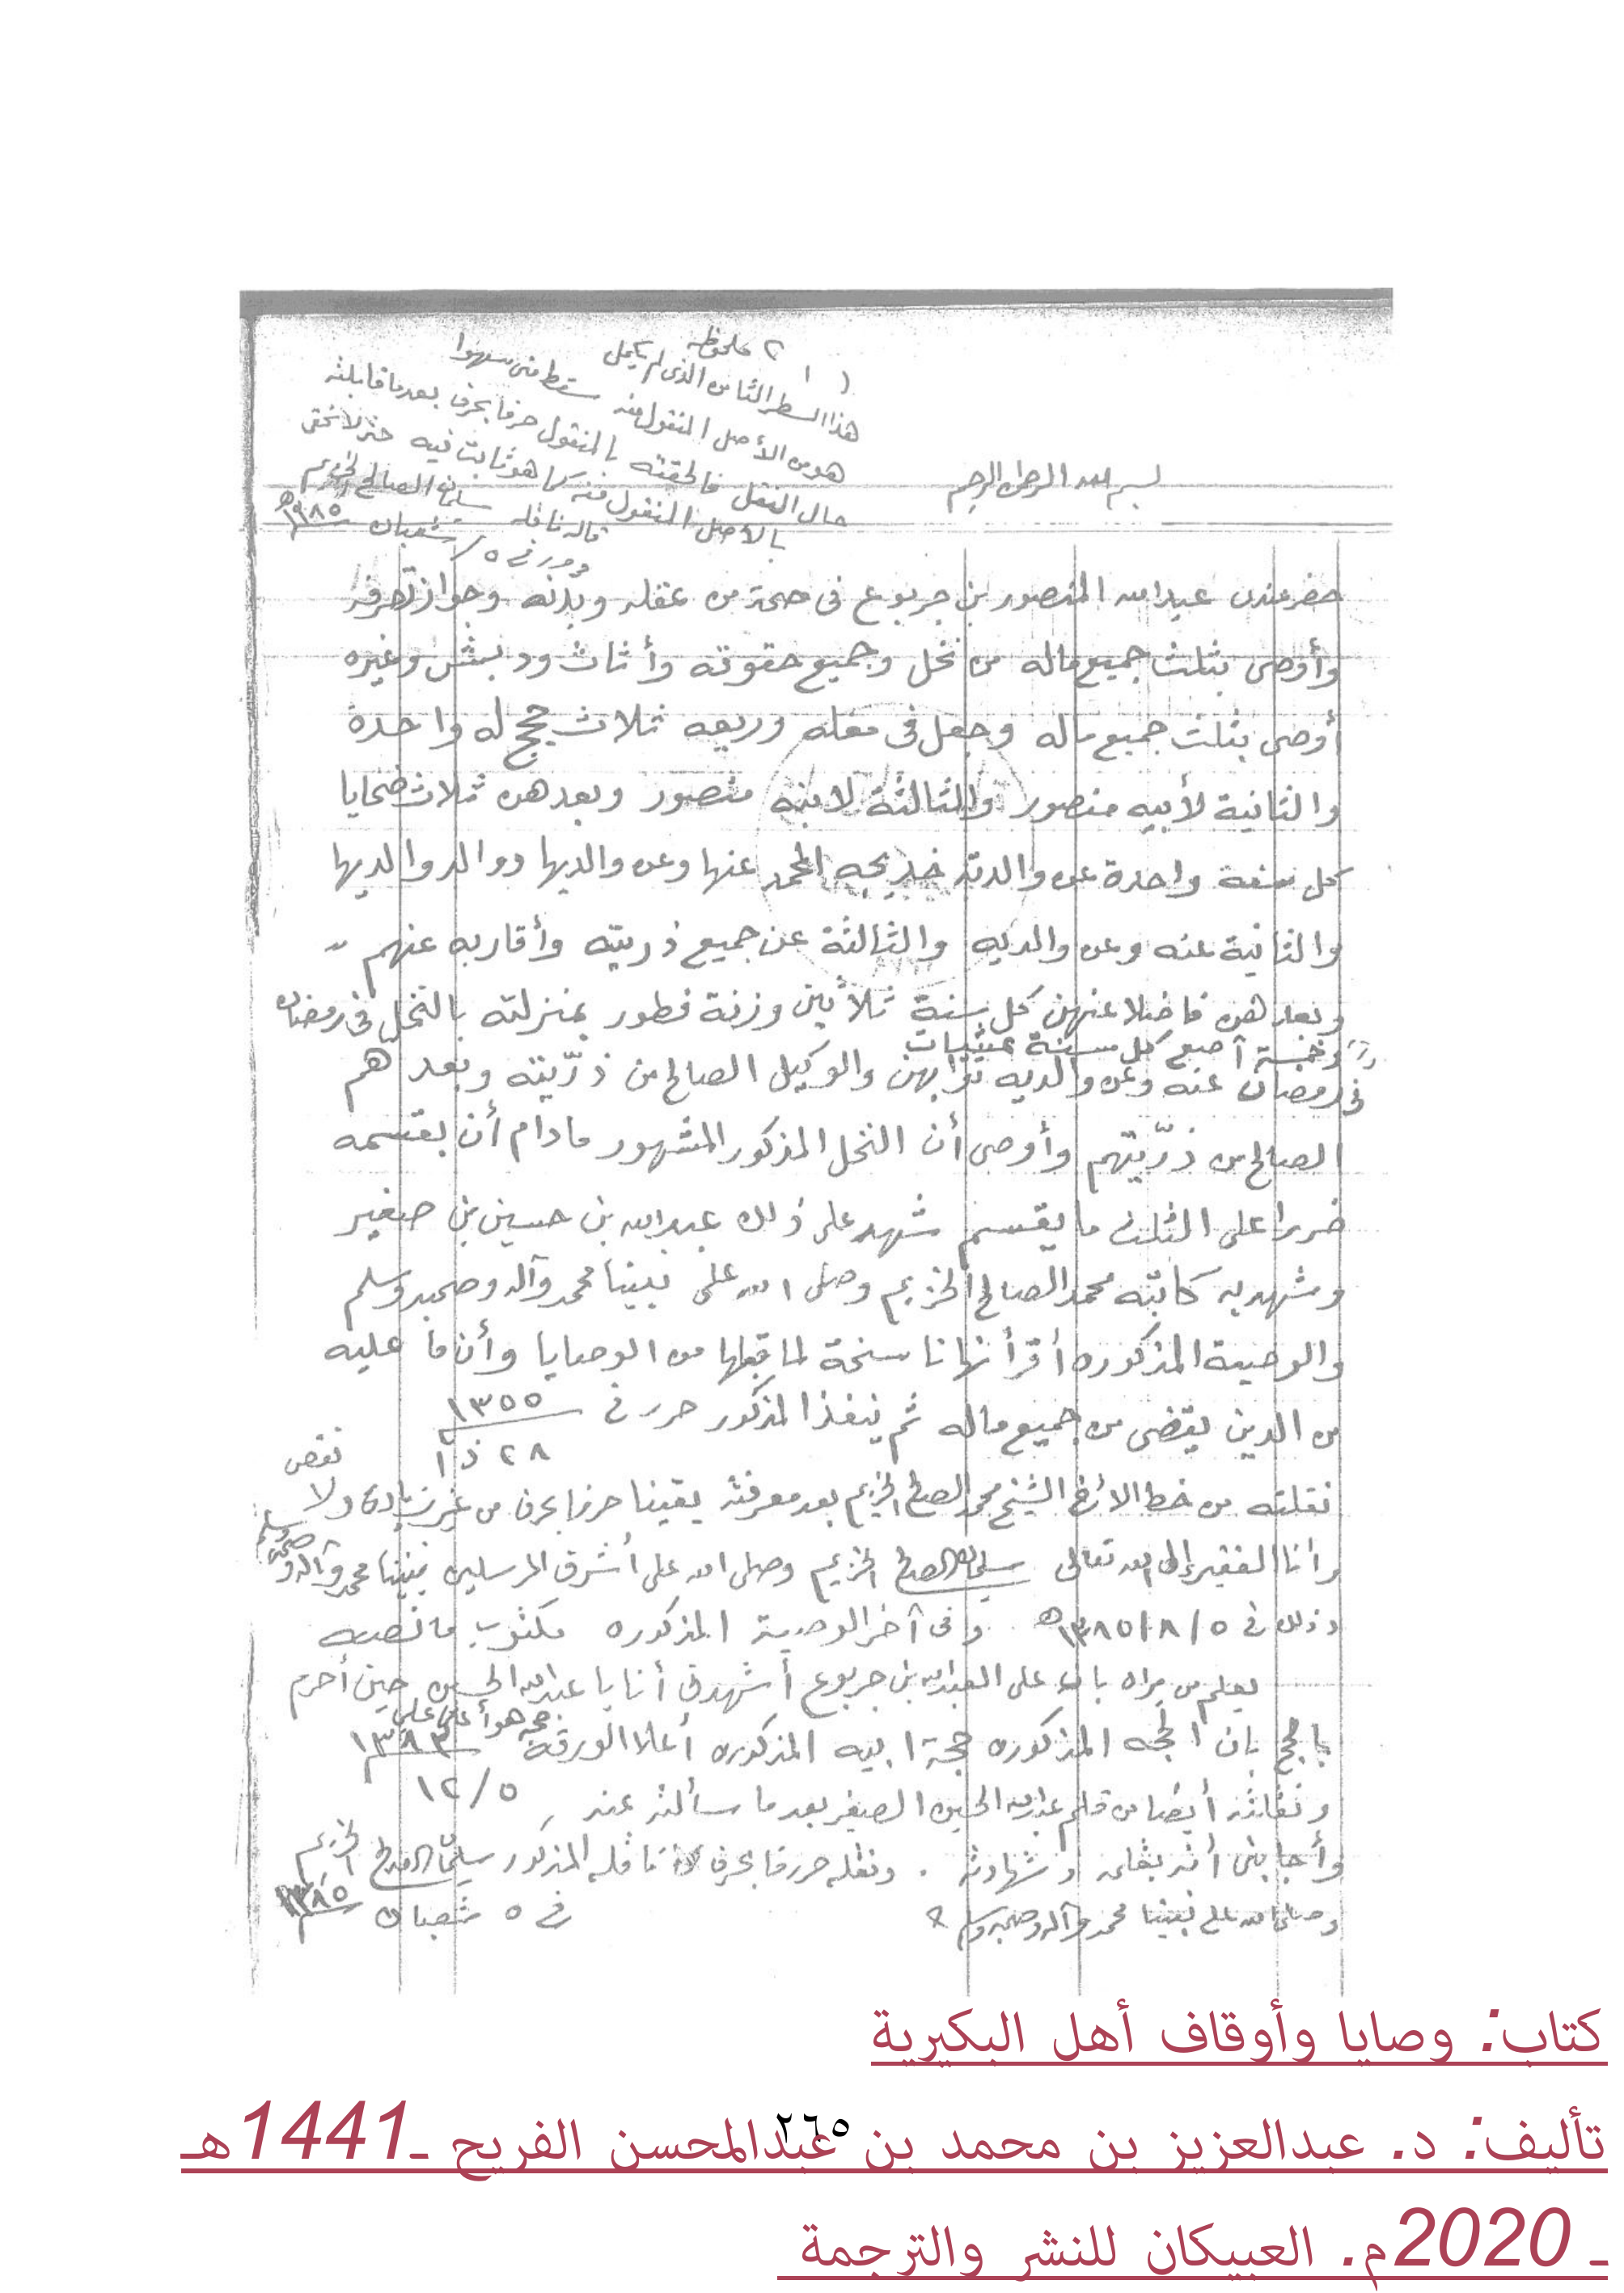 (١) ٢ ملحوظه
هذا السطر الثامن الذي لم يكمل
هو من الأصل المنقول منه سقط مني سهوا
حال النقل فألحقته بالمنقول حرفا بحرف بعدما قابلته
بالأصل المنقول منه كما هو ثابت فيه حتى لا يخفى
قاله ناقله سليمان الصالح الخزيم
وحرر في ٥ / شعبان ١٣٨٥هـ
بسم الله الرحمن الرحيم
حضر عندي عبدالله المنصور بن جربوع في صحة من عقله وبدنه وجواز تصرفه
وأوصى بثلث جميع ماله من نخل وجميع حقوقه وأثاث ودبش وغيره
أوصى بثلث جميع ماله وجعل في مغله وريعه ثلاث حجج له واحدة
والثانية لأبيه منصور والثالثة لابنه منصور وبعدهن ثلاث ضحايا
كل سنة واحدة عن والدته خديجه المحمد عنها وعن والديها ووالد والديها
والثانية عنه وعن والديه والثالثة عن جميع ذريته وأقاربه عنهم
وبعدهن فاضلا عنهن كل سنة ثلاثين وزنة فطور بمنزلته بالنخل في رمضان
وخمسة آصع كل سنة عشيات
في رمضان عنه وعن والديه ثوابهن والوكيل الصالح من ذرّيته وبعدهم
الصالح من ذرّيتهم وأوصى أن النخل المذكور المشهور مادام أن بقسمه
ضررا على الثلث ما يقسم شهد على ذلك عبدالله بن حسين بن صغير
وشهد به كاتبه محمد الصالح الخزيم وصلى الله على نبينا محمد وآله وصحبه وسلم
والوصية المذكوره أقر أنها ناسخة لما قبلها من الوصايا وأن ما عليه
من الدين يقضى من جميع ماله ثم ينفذ المذكور حرر في ١٣٥٥
٢٨ ذ ١
نقلته من خط الأخ الشيخ محمد الصالح الخزيم بعد معرفته يقينا حرفا بحرف من غير زيادة ولا نقص
وأنا الفقير إلى الله تعالى سليمان الصالح الخزيم وصلى الله على أشرف المرسلين نبينا محمد وآله وصحبه وسلم
وذلك في ٥ / ٨ / ١٣٨٥هـ وفي آخر الوصية المذكوره مكتوب ما نصه
يعلم من يراه بان على العبدالله بن جربوع أشهدني أنا يا عبدالله الحسين حين أحرم
بالحج بان الحجه المذكوره حجة ابيه المذكوره أعلا الورقة ١٣٨٣
١٢/٥
ونقلته أيضا من قلم عبدالله الحسين الصغير بعد ما سألته عنه
وأجابني أنه بقلمه وشهادته . ونقله حرفا بحرف ناقله المذكور سليمان الصالح الخزيم
وصلى الله على نبينا محمد وآله وصحبه وسلم في ٥ شعبان ١٣٨٥
كتاب: وصايا وأوقاف أهل البكيرية
٢٦٥
تأليف: د. عبدالعزيز بن محمد بن عبدالمحسن الفريح ـ1441هـ
ـ 2020م. العبيكان للنشر والترجمة